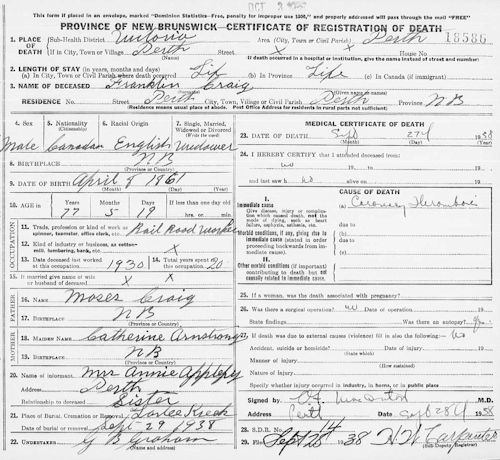 OCT 8 1938
This form if placed in an envelope, marked "Dominion Statistics—Free, penalty for improper use $300," and properly addressed will pass through the mail "FREE"
PROVINCE OF NEW BRUNSWICK—CERTIFICATE OF REGISTRATION OF DEATH
1. PLACE OF DEATH
Sub-Health District Victoria Area (City, Town or Civil Parish) Perth 18586
If in City, Town or Village Perth Street X House No. X
If death occurred in a hospital or institution, give the name instead of street and number
2. LENGTH OF STAY (in years, months and days)
(a) In City, Town or Civil Parish where death occurred Life (b) In Province Life (c) In Canada (if immigrant)
3. NAME OF DECEASED Franklin Craig
(Given names)
RESIDENCE No. Street Perth City, Town, Village or Civil Parish Perth Province NB
Residence means usual place of abode. Post Office Address for Residents in rural parts not sufficient)
4. Sex
5. Nationality (Citizenship)
6. Racial Origin
7. Single, Married, Widowed or Divorced (Write the word)
Male Canadian English Widower
8. BIRTHPLACE NB
(Province or Country)
9. DATE OF BIRTH April 8 1861
(Month) (Day) (Year)
10. AGE in Years Months Days If less than one day old
77 5 19 hrs. or min.
OCCUPATION
11. Trade, profession or kind of work as spinner, teamster, office clerk, etc. Rail Road Worker
12. Kind of industry or business, as cotton-mill, lumbering, bank, etc. X
13. Date deceased last worked at this occupation 1930
14. Total years spent in this occupation 20
15. If married give name of wife or husband of deceased X X
FATHER
16. NAME Moses Craig
17. BIRTHPLACE NB
(Province or Country)
MOTHER
18. MAIDEN NAME Catherine Armstrong
19. BIRTHPLACE NB
(Province or Country)
20. Name of informant Mrs Annie Appleby
Address Perth
Relationship to deceased Sister
21. Place of Burial, Cremation or Removal
Date of Burial Sept 29 1938
22. UNDERTAKER G B Graham
MEDICAL CERTIFICATE OF DEATH
23. DATE OF DEATH Sept 27 1938
(Month) (Day) (Year)
24. I HEREBY CERTIFY that I attended deceased from:
no to
and last saw h alive on
CAUSE OF DEATH
I.
Immediate cause
Give disease, injury or complication which caused death, not the mode of dying, such as heart failure, asphyxia, asthenia, etc.
(a) Coronary Thrombosis
due to
Morbid conditions, if any, giving rise to immediate cause (stated in order proceeding backwards from immediate cause).
(b)
due to
(c)
II.
Other morbid conditions (if important) contributing to death but not causally related to immediate cause.
25. If a woman, was the death associated with pregnancy?
26. Was there a surgical operation? no Date of operation
State findings Was there an autopsy?
27. If death was due to external causes (violence) fill in also the following:—
Accident, suicide or homicide? Date of injury 19
(State which)
Manner of injury
(How sustained)
Nature of injury
Specify whether injury occurred in industry, in home, or in public place
Signed by M.D.
Address Perth Date Sept 28 1938
28. S.D.R. No. 14
29. Filed Sept 28 1938 H W Carpenter
(Sub-Deputy Registrar)